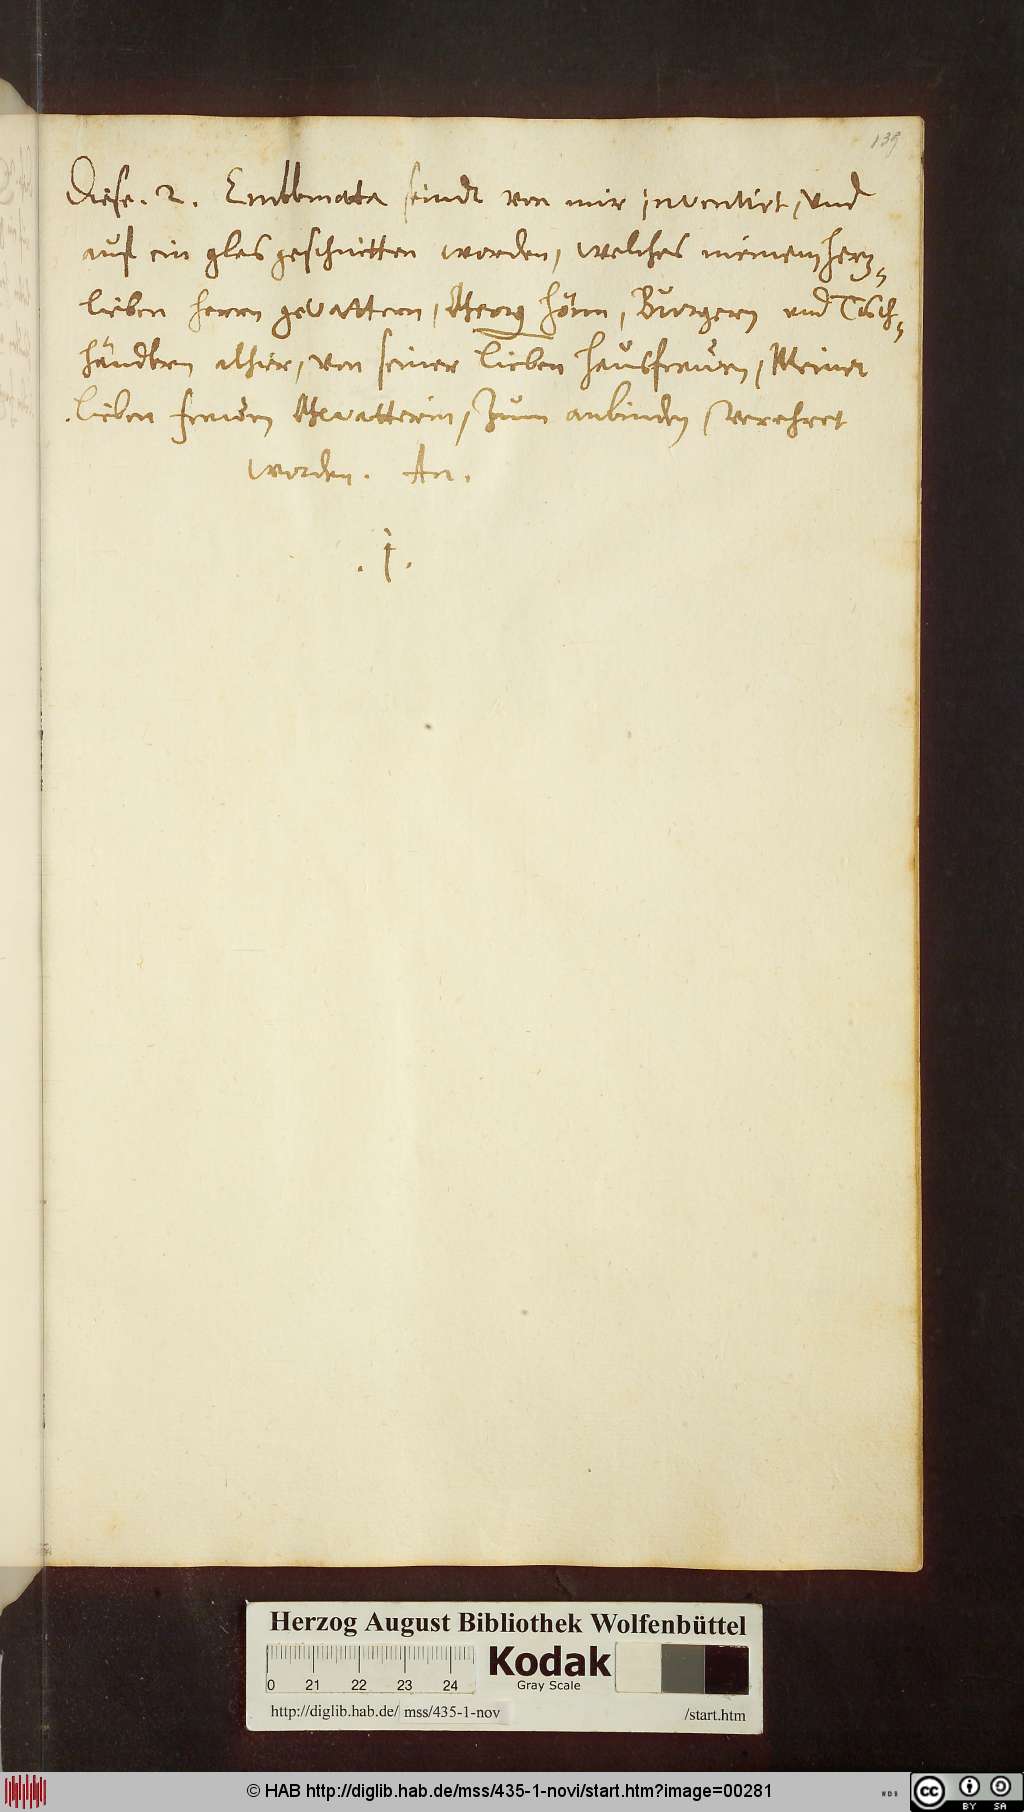 139
Diese. 2. Emblemata seindt von mir inventirt, und
auf ein glas geschnitten worden, welches meinem herz„
lieben herrn gevattern, Georg Hönn, Burgern und Tisch„
händlern alhier, von seiner lieben hausfrauen, Meiner
lieben frauen Gevatterin, zum anbinden verehret
worden. An.
. 1 .
Herzog August Bibliothek Wolfenbüttel
0 21 22 23 24
Kodak
Gray Scale
http://diglib.hab.de/ mss/435-1-nov /start.htm
© HAB http://diglib.hab.de/mss/435-1-novi/start.htm?image=00281
WDB
cc BY SA